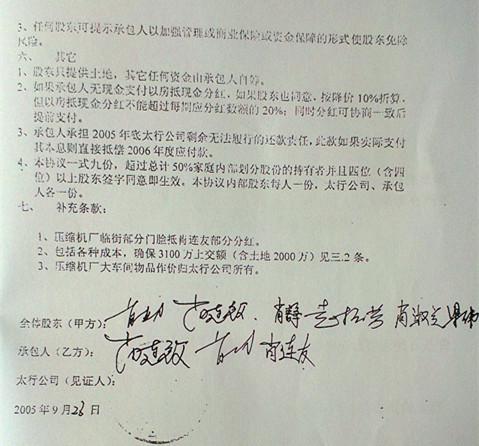 3、任何股东可提示承包人以加强管理或商业保险或资金保障的形式使股东免除
风险。
六、 其它
1、股东只提供土地，其它任何资金由承包人自筹。
2、如果承包人无现金支付以房抵现金分红，如果股东也同意，按降价10%折算，
但以房抵现金分红不能超过每期应分红数额的20%；同时分红可协商一致后
提前支付。
3、承包人承担2005年底太行公司剩余无法履行的还款责任，此款如果实际支付
其本息则直接抵偿2006年度应付款。
4、本协议一式九份，超过总计50%家庭内部划分股份的持有者并且四位（含四
位）以上股东签字同意即生效。本协议内部股东每人一份，太行公司、承包
人各一份。
七、 补充条款：
1、压缩机厂临街部分门脸抵肖连友部分分红。
2、包括各种成本，确保3100万上交额（含土地2000万）见三.2条。
3、压缩机厂大车间物品作价归太行公司所有。
全体股东（甲方）： 肖静 肖淑兰
承包人（乙方）： 肖连友
太行公司（见证人）：
2005年9月23日